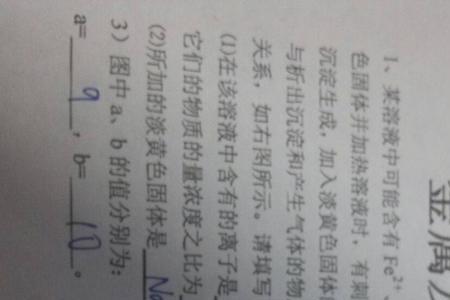 金属
1、某溶液中可能含有 Fe²⁺
色固体并加热溶液时，有刺
沉淀生成，加入淡黄色固体
与析出沉淀和产生气体的物
关系，如右图所示。请填写
(1)在该溶液中含有的离子是
它们的物质的量浓度之比为
(2)所加的淡黄色固体是 Na
3）图中 a、b 的值分别为：
a= 9 ，b= 10 。